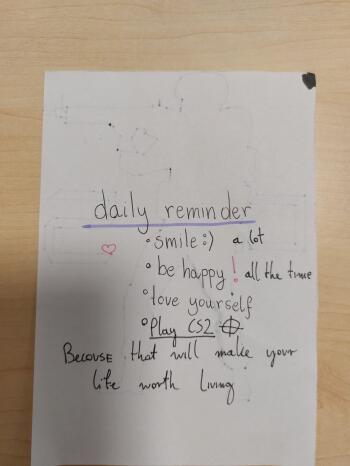 daily reminder
• smile :) a lot
• be happy! all the time
• love yourself
• Play CS2
Because that will make your
life worth living